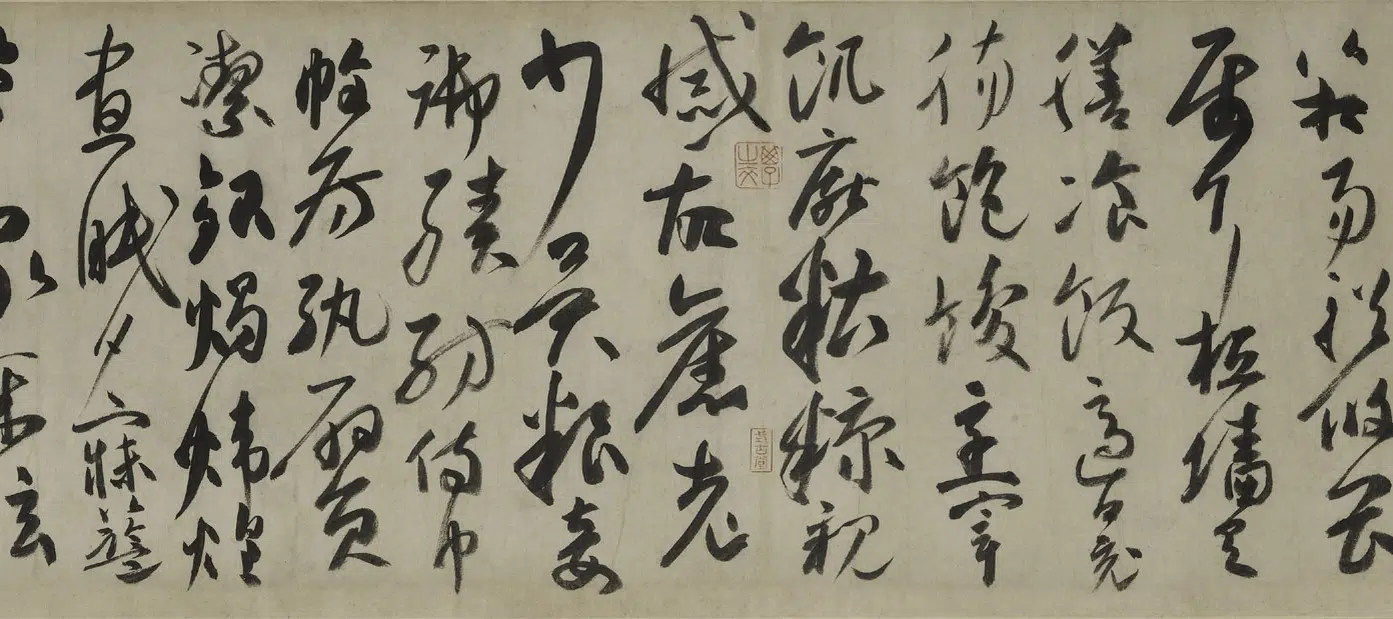 箱易輶攸畏
屬耳垣墻具
膳飡飯適口充
腸飽飫烹宰
飢厭糟糠親
戚故舊老
少異粮妾
御績紡侍巾
帷房紈扇員
潔銀燭煒煌
晝眠夕寐藍